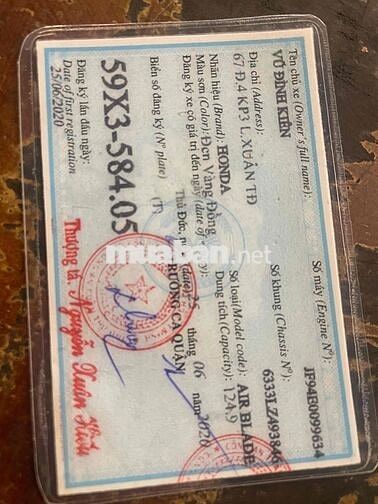 Tên chủ xe (Owner's full name):
VÕ ĐÌNH KIÊN
Số máy (Engine N°):
JF94E0099634
Địa chỉ (Address):
67 Đ.4 KP3 L.XUÂN TĐ
Số khung (Chassis N°):
6333LZ493846
Nhãn hiệu (Brand): HONDA
Số loại (Model code): AIR BLADE
Màu sơn (Color): Đen Vàng Đồng
Dung tích (Capacity): 124.9
Đăng ký xe có giá trị đến ngày (date of expiry):
Thủ Đức, ngày 25 tháng 06 năm 2020
Biển số đăng ký (N° plate) (T)
TRƯỞNG CA QUẬN
59X3-584.05
Đăng ký lần đầu ngày:
Date of first registration
25/06/2020
Thượng tá. Nguyễn Xuân
muaban.net